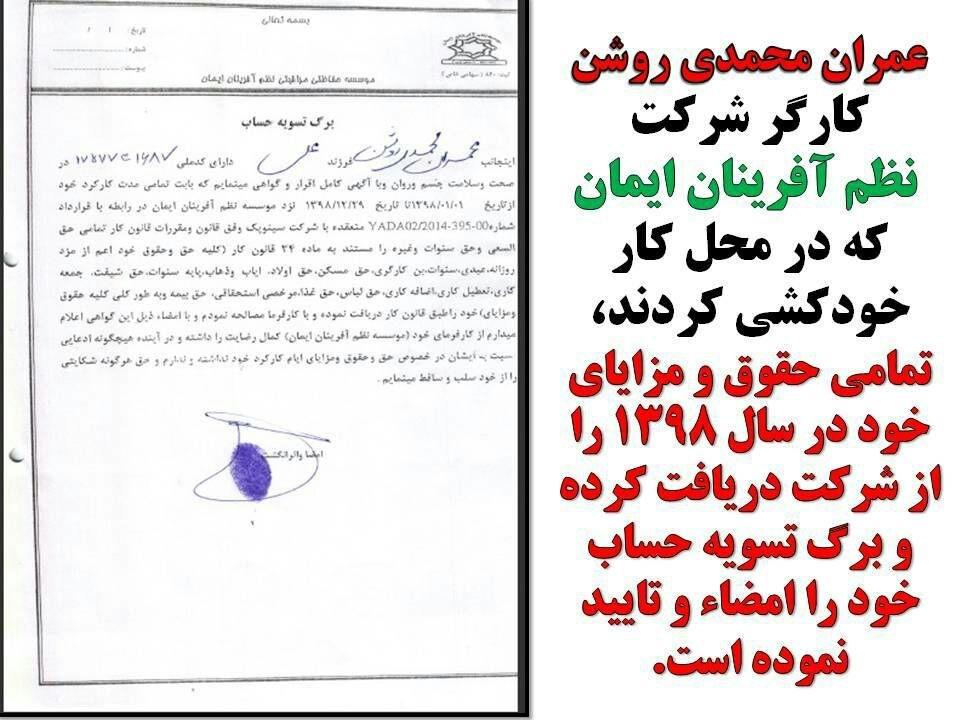 عمران محمدی روشن
کارگر شرکت
نظم آفرینان ایمان
که در محل کار
خودکشی کردند،
تمامی حقوق و مزایای
خود در سال ۱۳۹۸ را
از شرکت دریافت کرده
و برگ تسویه حساب
خود را امضاء و تایید
نموده است.
بسمه تعالی
تاریخ: / /
شماره:
پیوست:
موسسه حفاظتی مراقبتی نظم آفرینان ایمان
برگ تسویه حساب
اینجانب عمران محمدی روشن فرزند علی دارای کدملی در
صحت وسلامت جسم وروان وبا آگهی کامل اقرار و گواهی مینمایم که بابت تمامی مدت کارکرد خود
ازتاریخ ۱۳۹۸/۰۱/۰۱تا تاریخ ۱۳۹۸/۱۲/۲۹ نزد موسسه نظم آفرینان ایمان در رابطه با قرارداد
شمارهYADA02/2014-395-00 منعقده با شرکت سینوپک وفق قانون ومقررات قانون کار تمامی حق
السعی وحق سنوات وغیره را مستند به ماده ۲۴ قانون کار (کلیه حق وحقوق خود اعم از مزد
روزانه،عیدی،سنوات،بن کارگری،حق مسکن،حق اولاد، ایاب وذهاب،پایه سنوات،حق شیفت، جمعه
کاری،تعطیل کاری،اضافه کاری،حق لباس،حق غذا،مرخصی استحقاقی، حق بیمه وبه طور کلی کلیه حقوق
ومزایای) خود راطبق قانون کار دریافت نموده و با کارفرما مصالحه نمودم و با امضاء ذیل این گواهی اعلام
میدارم از کارفرمای خود (موسسه نظم آفرینان ایمان) کمال رضایت را داشته و در آینده هیچگونه ادعایی
نسبت به ایشان در خصوص حق وحقوق ومزایای ایام کارکرد خود نداشته و ندارم و حق هرگونه شکایتی
را از خود سلب و ساقط مینمایم.
امضا واثرانگشت